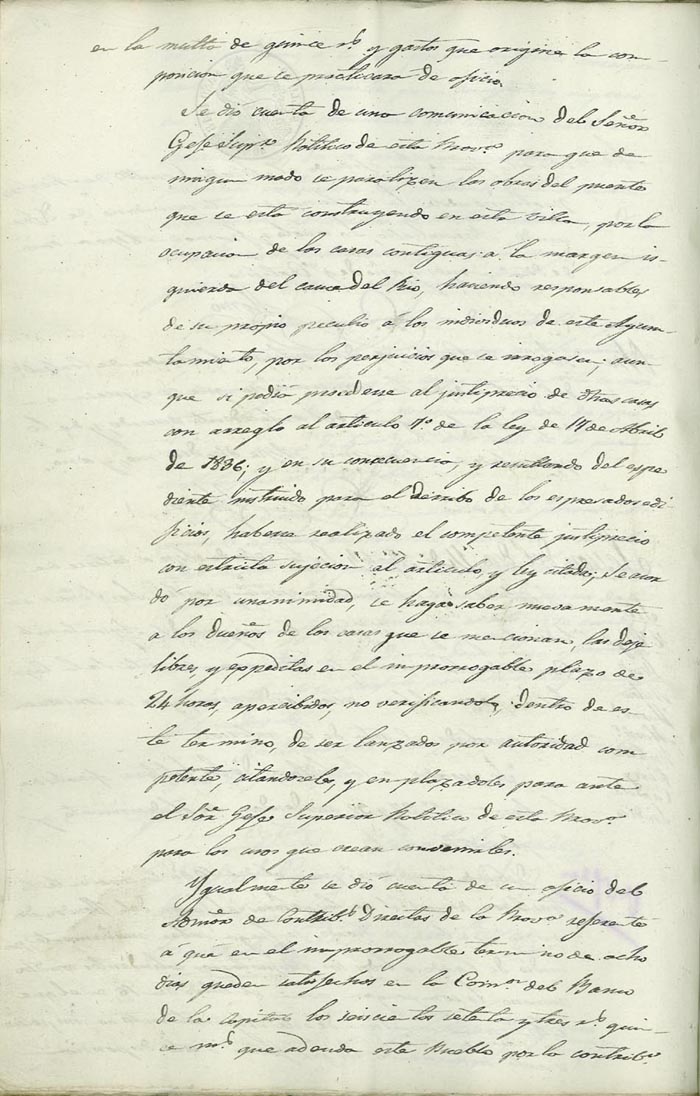 en la multa de quince rˢ y gastos que origine la com-
posicion que se practicara de oficio.
Se dió cuenta de una comunicacion del Señor
Gefe Supᵒʳ Politico de esta Provᵃ para que de
ningun modo se paralizen las obras del puente
que se está construyendo en esta Villa, por la
ocupacion de las casas contiguas a la margen iz-
quierda del cauce del Rio, haciendo responsables
de su propio peculio á los individuos de este Ayun-
tamiento, por los perjuicios que se irrogasen; aun-
que si podrá procederse al justiprecio de dhas casas
con arreglo al articulo 7º de la ley de 17 de Abril
de 1836; y en su consecuencia, y resultando del espe-
diente instruido para el derribo de los espresados edi-
ficios, haberse realizado el competente justiprecio
con estricta sujecion al articulo y ley citada; Se acor-
dó por unanimidad, se haga saber nuevamente
a los dueños de las casas que se mencionan, las dejen
libres, y expeditas en el improrrogable plazo de
24 horas, apercibidos, no verificandolo, dentro de es-
te termino, de ser lanzados por autoridad com-
petente, citandoseles, y emplazadoles para ante
el Sᵒʳ Gefe Superior Politico de esta Provᵃ
para los usos que crean combenirles.
Ygualmente se dió cuenta de un oficio del
Admᵒʳ de Contribˢ Directas de la Provᵃ referente
á que en el improrrogable termino de ocho
dias queden satisfechos en la Comᵒⁿ del Banco
de la capital los seiscientos setenta y tres rˢ quin-
ce mˢ que adeuda este Pueblo por la contribᵒⁿ